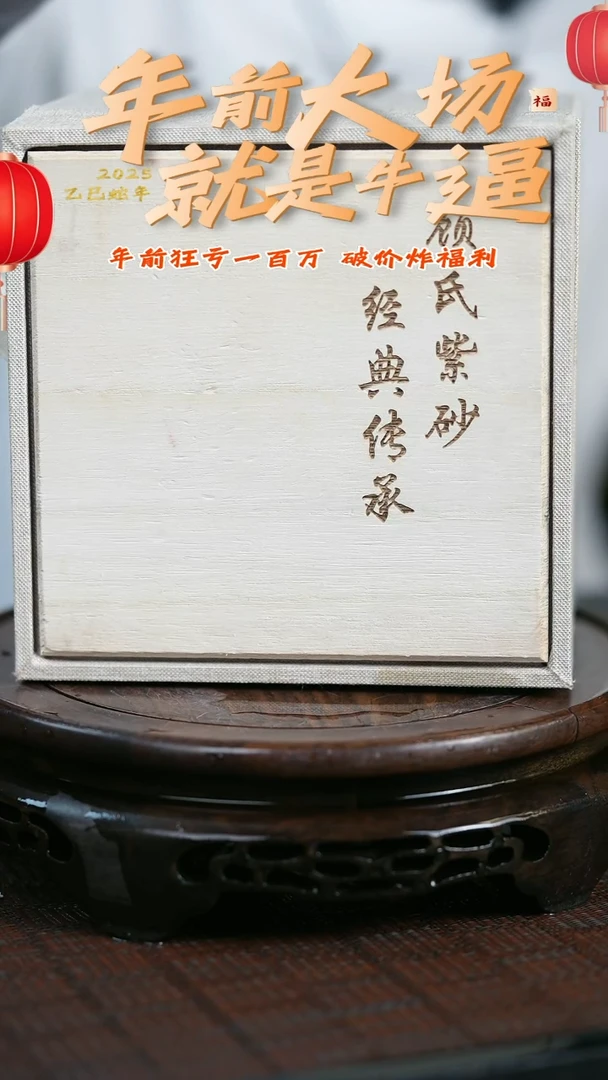 年前大场
福
就是牛逼
2025
乙巳蛇年
年前狂亏一百万 破价炸福利
顾氏紫砂
经典传承